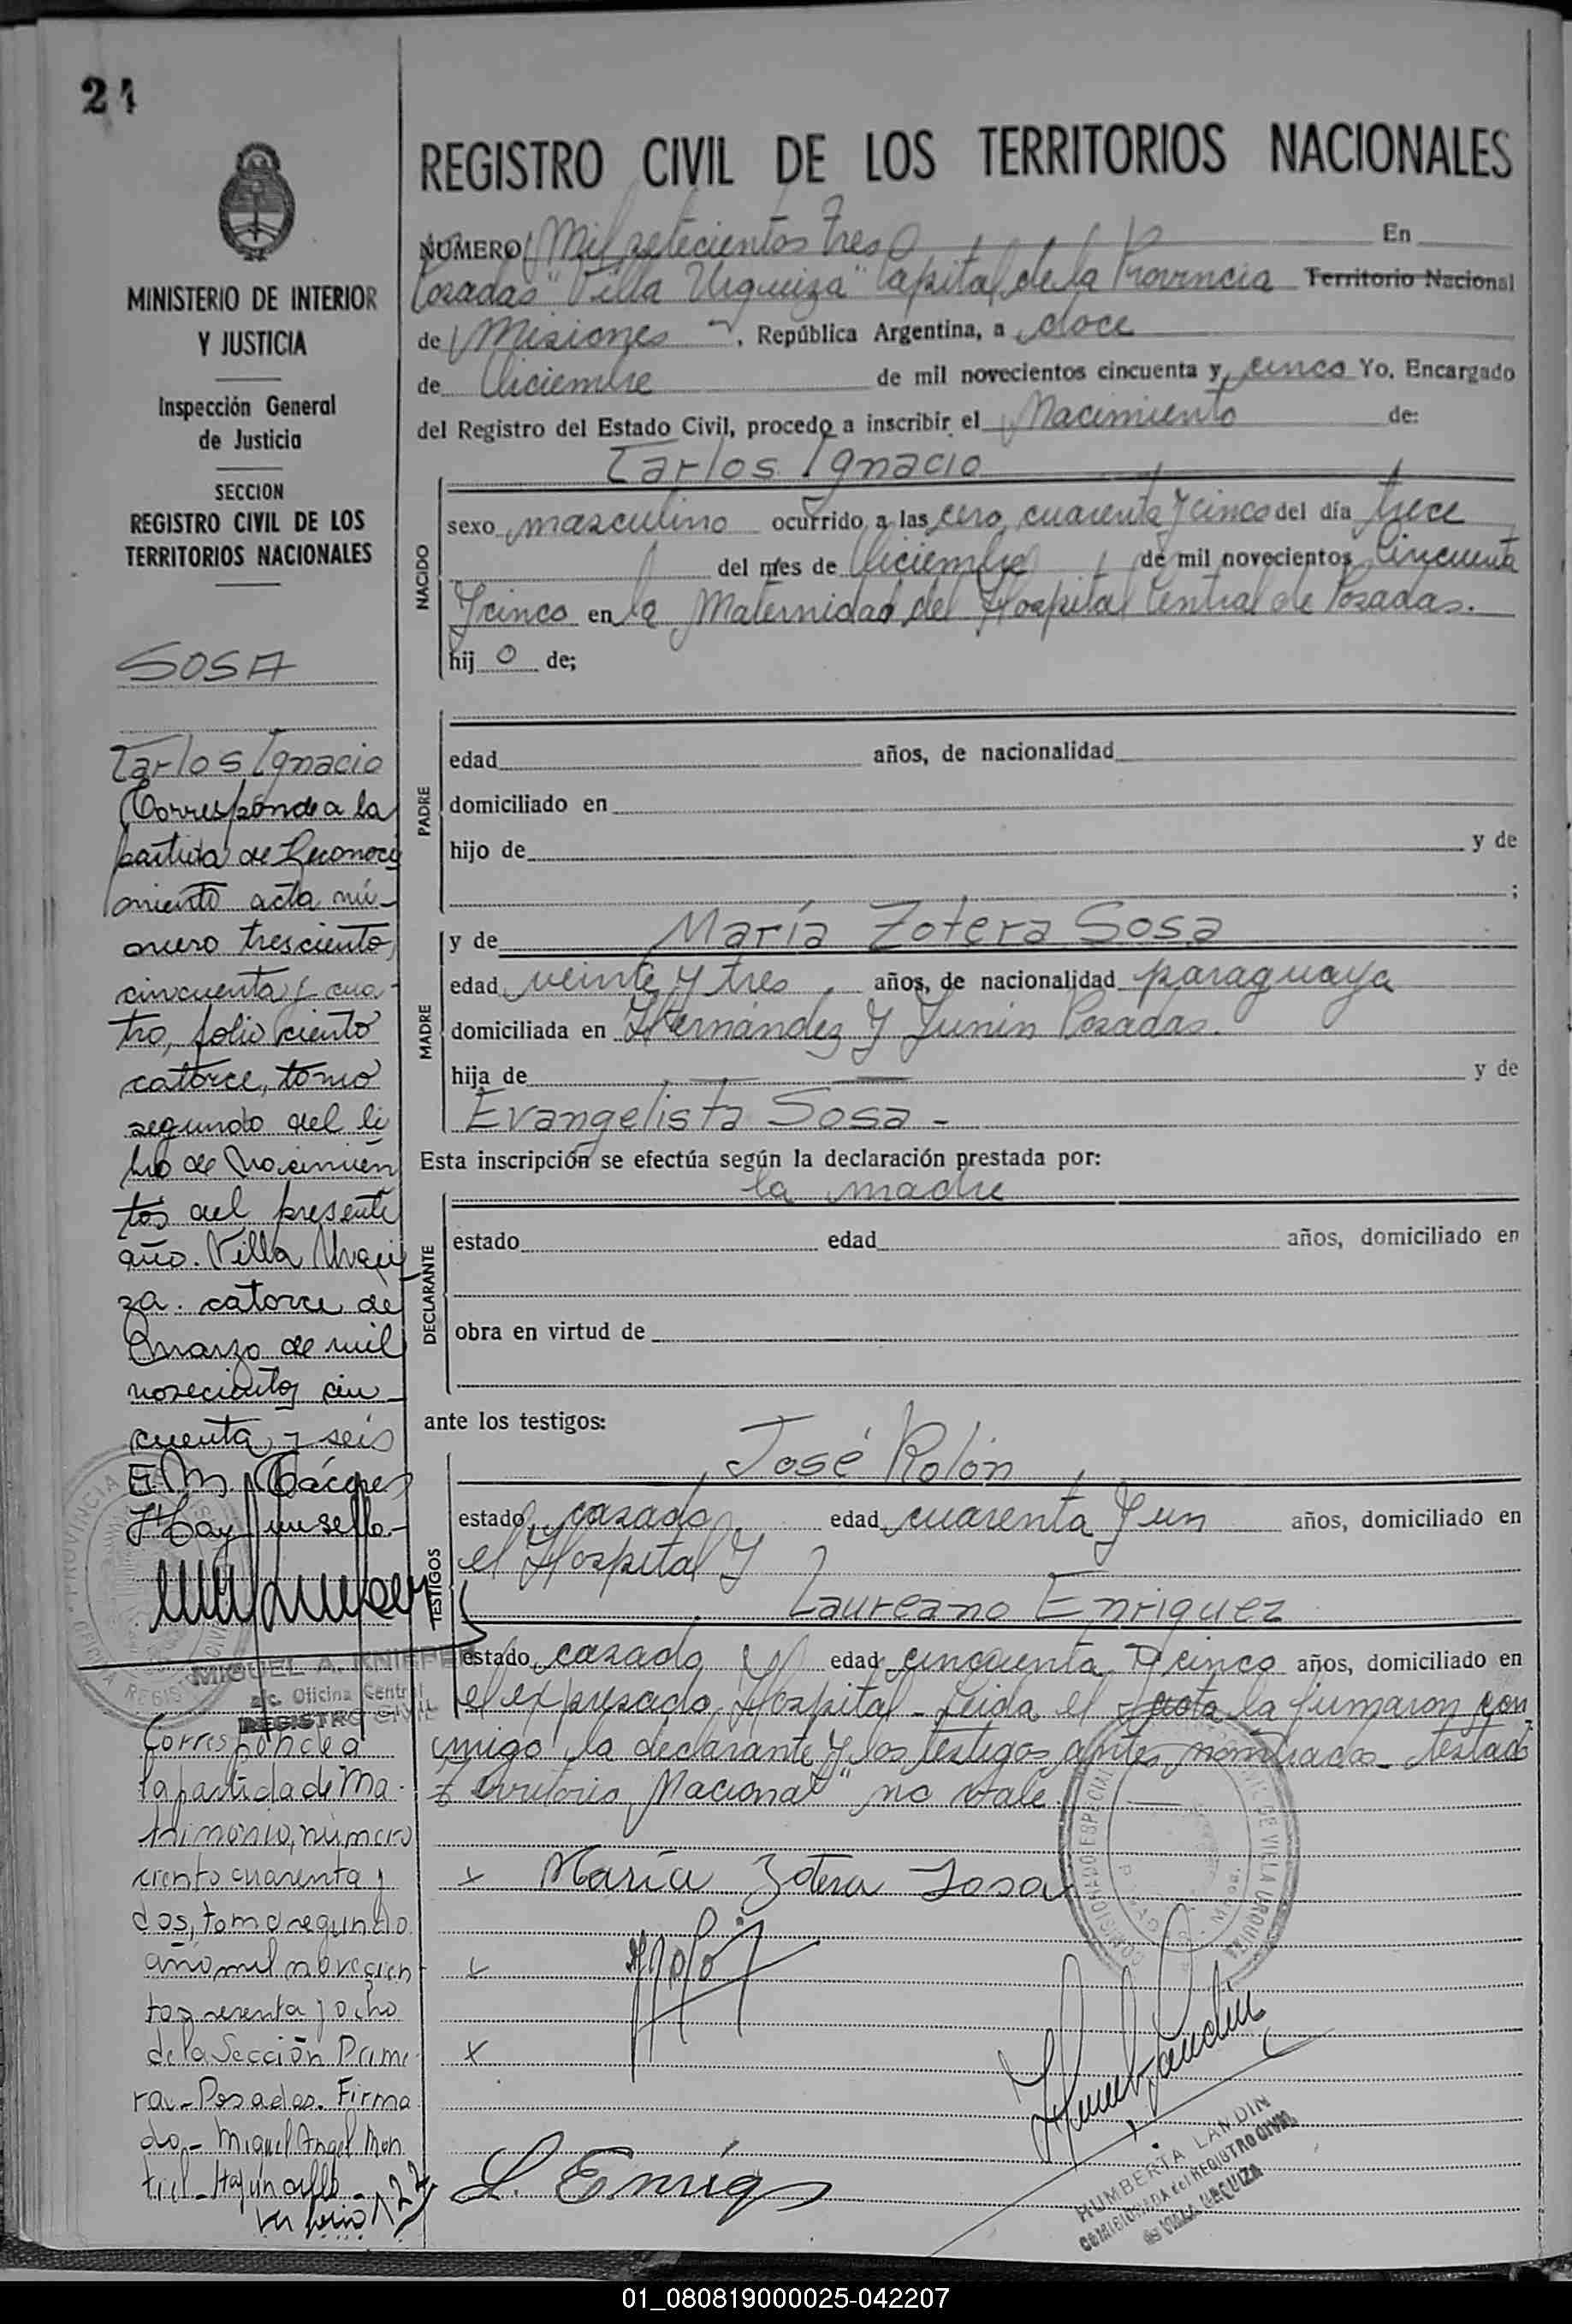 24
MINISTERIO DE INTERIOR
Y JUSTICIA
Inspección General
de Justicia
SECCION
REGISTRO CIVIL DE LOS
TERRITORIOS NACIONALES
SOSA
Carlos Ignacio
Corresponde a la
partida de Reconoci
miento acta nú-
mero trescientos
cincuenta y cua-
tro, folio ciento
catorce, tomo
segundo del li
bro de Nacimien
tos del presente
año. Villa Urqui
za. catorce de
Marzo de mil
novecientos cin
cuenta y seis
Hay un sello-
MIGUEL A. KNIEPER
a/c. Oficina Central
REGISTRO CIVIL
Corresponde a
la partida de Ma-
trimonio, número
ciento cuarenta y
dos, tomo segundo
año mil novecien
tos sesenta y ocho
de la Sección Prime
ra-Posadas. Firma
do-Miguel Angel Mon
tiel-Hay un sello-
REGISTRO CIVIL DE LOS TERRITORIOS NACIONALES
NUMERO Mil setecientos tres En
Posadas "Villa Urquiza" Capital de la Provincia Territorio Nacional
de Misiones, República Argentina, a doce
de Diciembre de mil novecientos cincuenta y cinco Yo, Encargado
del Registro del Estado Civil, procedo a inscribir el Nacimiento de:
Carlos Ignacio
NACIDO
sexo masculino ocurrido a las cero cuarenta y cinco del día trece
del mes de Diciembre de mil novecientos cincuenta
y cinco en la Maternidad del Hospital Central de Posadas.
hij o de;
PADRE
edad años, de nacionalidad
domiciliado en
hijo de y de
;
MADRE
y de María Zotera Sosa
edad veinte y tres años, de nacionalidad paraguaya
domiciliada en Hernández y Junin Posadas.
hija de — — y de
Evangelista Sosa -
Esta inscripción se efectúa según la declaración prestada por:
la madre
DECLARANTE
estado edad años, domiciliado en
obra en virtud de
ante los testigos:
José Rolón
TESTIGOS
estado casado edad cuarenta y un años, domiciliado en
el Hospital y
Laureano Enriquez
estado casado edad cincuenta y cinco años, domiciliado en
el expresado Hospital - Leida el acta la firmaron con
migo la declarante y los testigos antes nombrados - testado
"Territorio Nacional" no vale.
x María Zotera Sosa
x
x
L. Enriq
HUMBERTA LANDIN
COMISIONADA del REGISTRO CIVIL
de VILLA URQUIZA
01_080819000025-042207